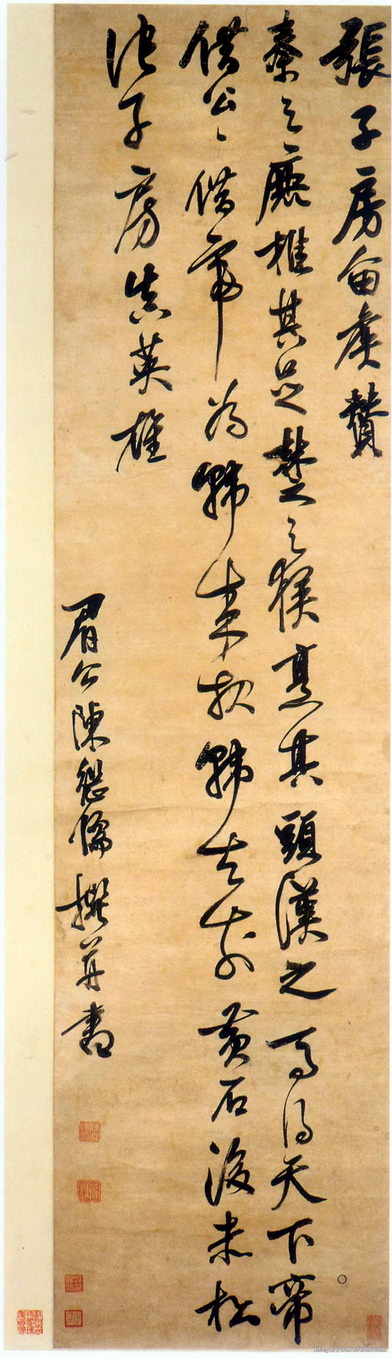 張子房留侯贊
秦之鹿椎其足楚之猴烹其頭漢之馬得天下帝
借公々借帝為韓來報韓去前黃石後赤松
張子房真英雄
眉公陳繼儒撰并書